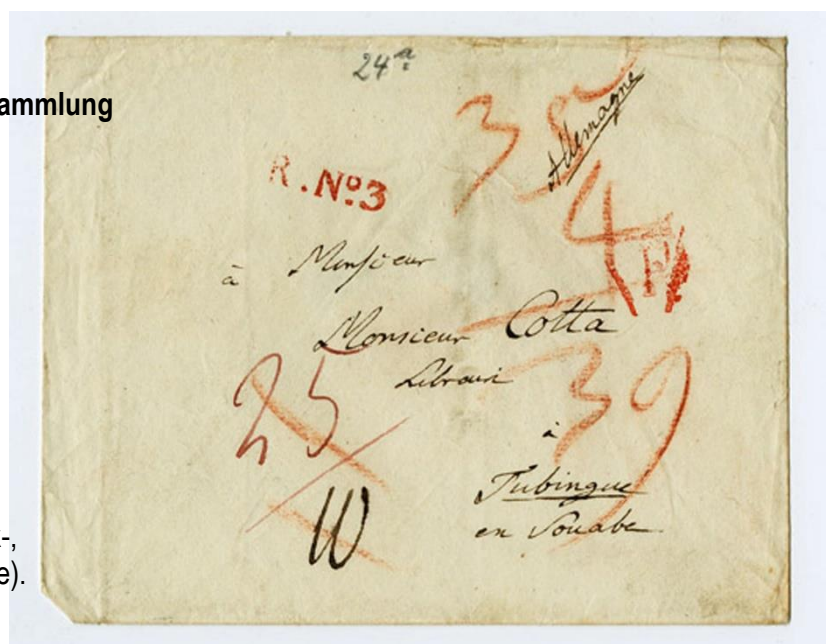 24ª
ammlung
35
Allemagne
R. Nº3
4
P
à Monsieur
Monsieur Cotta
Libraire
25
39
à
Tubingue
en Souabe
-,
e).